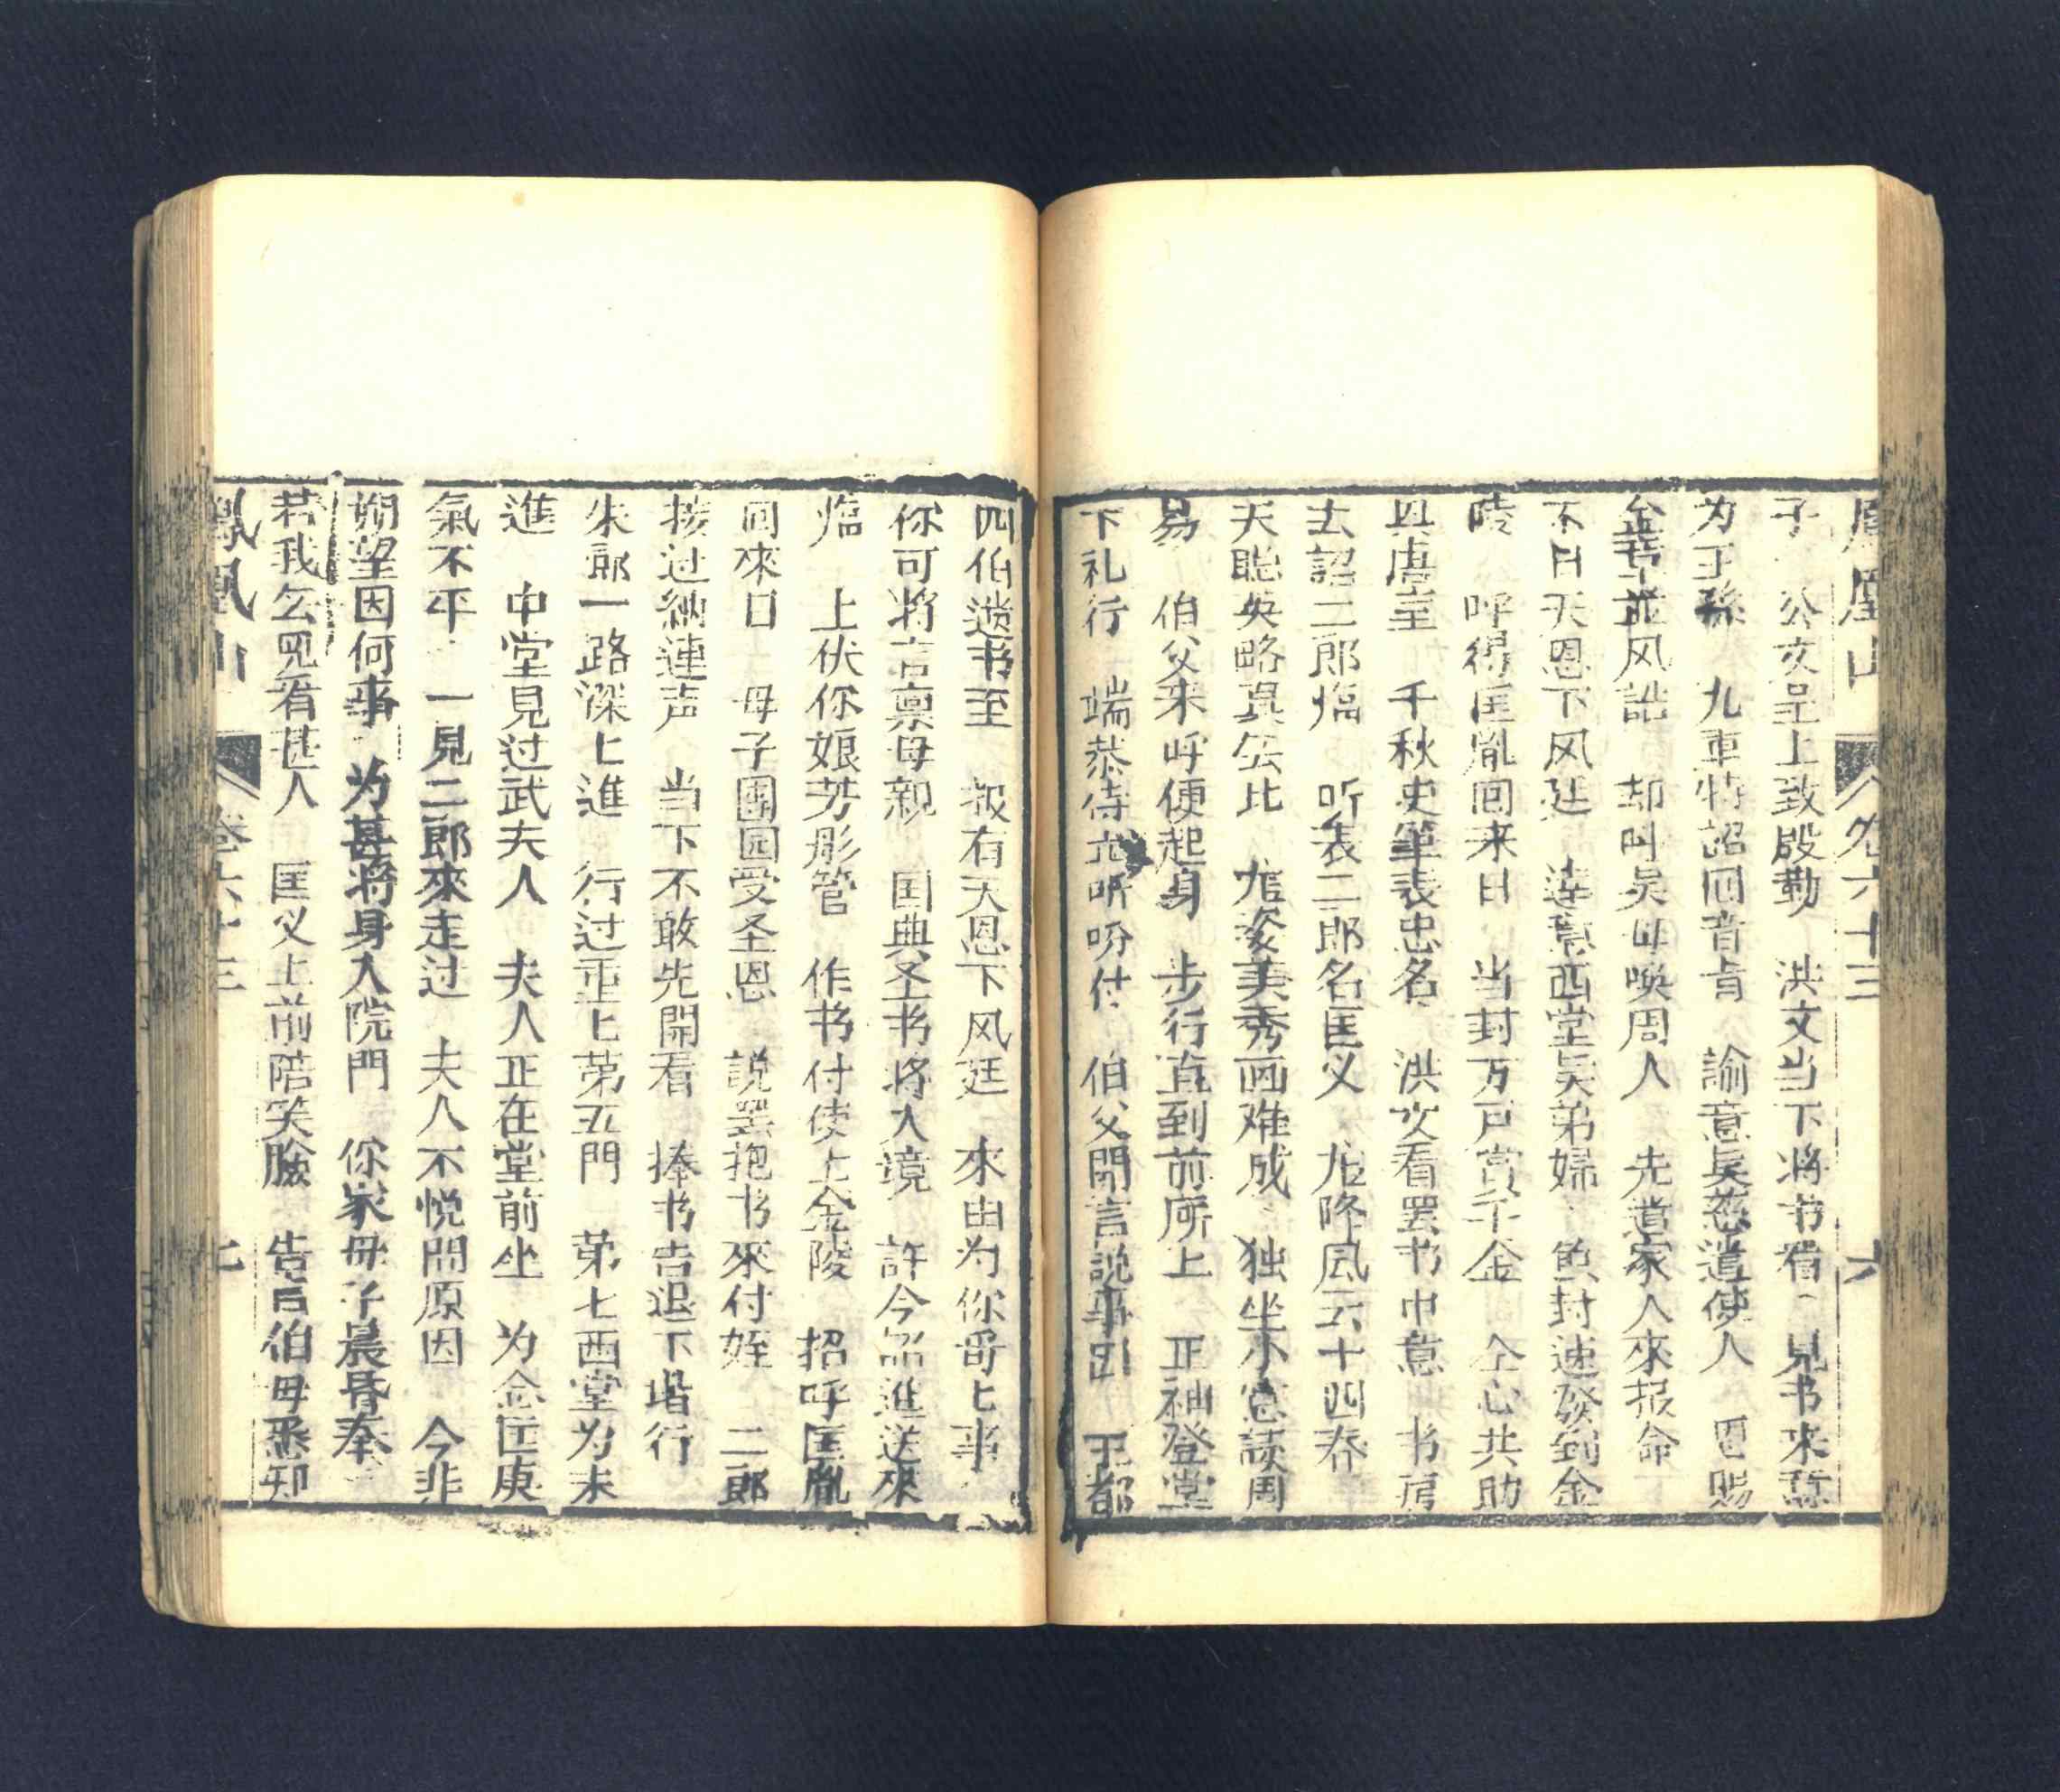 鳳凰山 卷六十三 六
子 公文呈上致殷勤 洪文当下將书看 見书來
为王孫 九重特詔回音旨 諭意眞慈遣使人 恩賜
风誥 却叫吴母喚周人 先道家人來报命
不日天恩下风廷 達意西堂吴弟婦 封速發到金
陵 呼得匡胤回来日 当封万户賞千金 仝心共助
具唐室 千秋史筆表忠名 洪文看罢书中意 书房
去詔二郎临 听表二郎名匡义 龙降凤 十四春
天聪英略真公比 龙姿美秀画难成 独坐小窓談周
易 伯父来呼便起身 步行直到前所上 正袖登堂
下礼行 端恭侍立听吩付 伯父開言説事因 王都
四伯遞书至 报有天恩下风廷 來由为你哥匕事
你可將言禀母親 国典圣书將入境 許今詔進送來
临 上伏你娘芳彤管 作书付使上金陵 招呼匡胤
回來日 母子團园受圣恩 説罢抱书來付姪 二郎
接过納連声 当下不敢先開看 捧书告退下堦行
朱郎一路深匕進 行过重匕第五門 第七西堂为末
進 中堂見过武夫人 夫人正在堂前坐 为念匡庚
氣不平 一見二郎來走过 夫人不悦問原因 今非
朔望因何事 为甚將身入院門 你家母子晨昏奉
若我公児有甚人 匡义上前陪笑臉 告言伯母悉知
鳳凰山 卷六十三 七